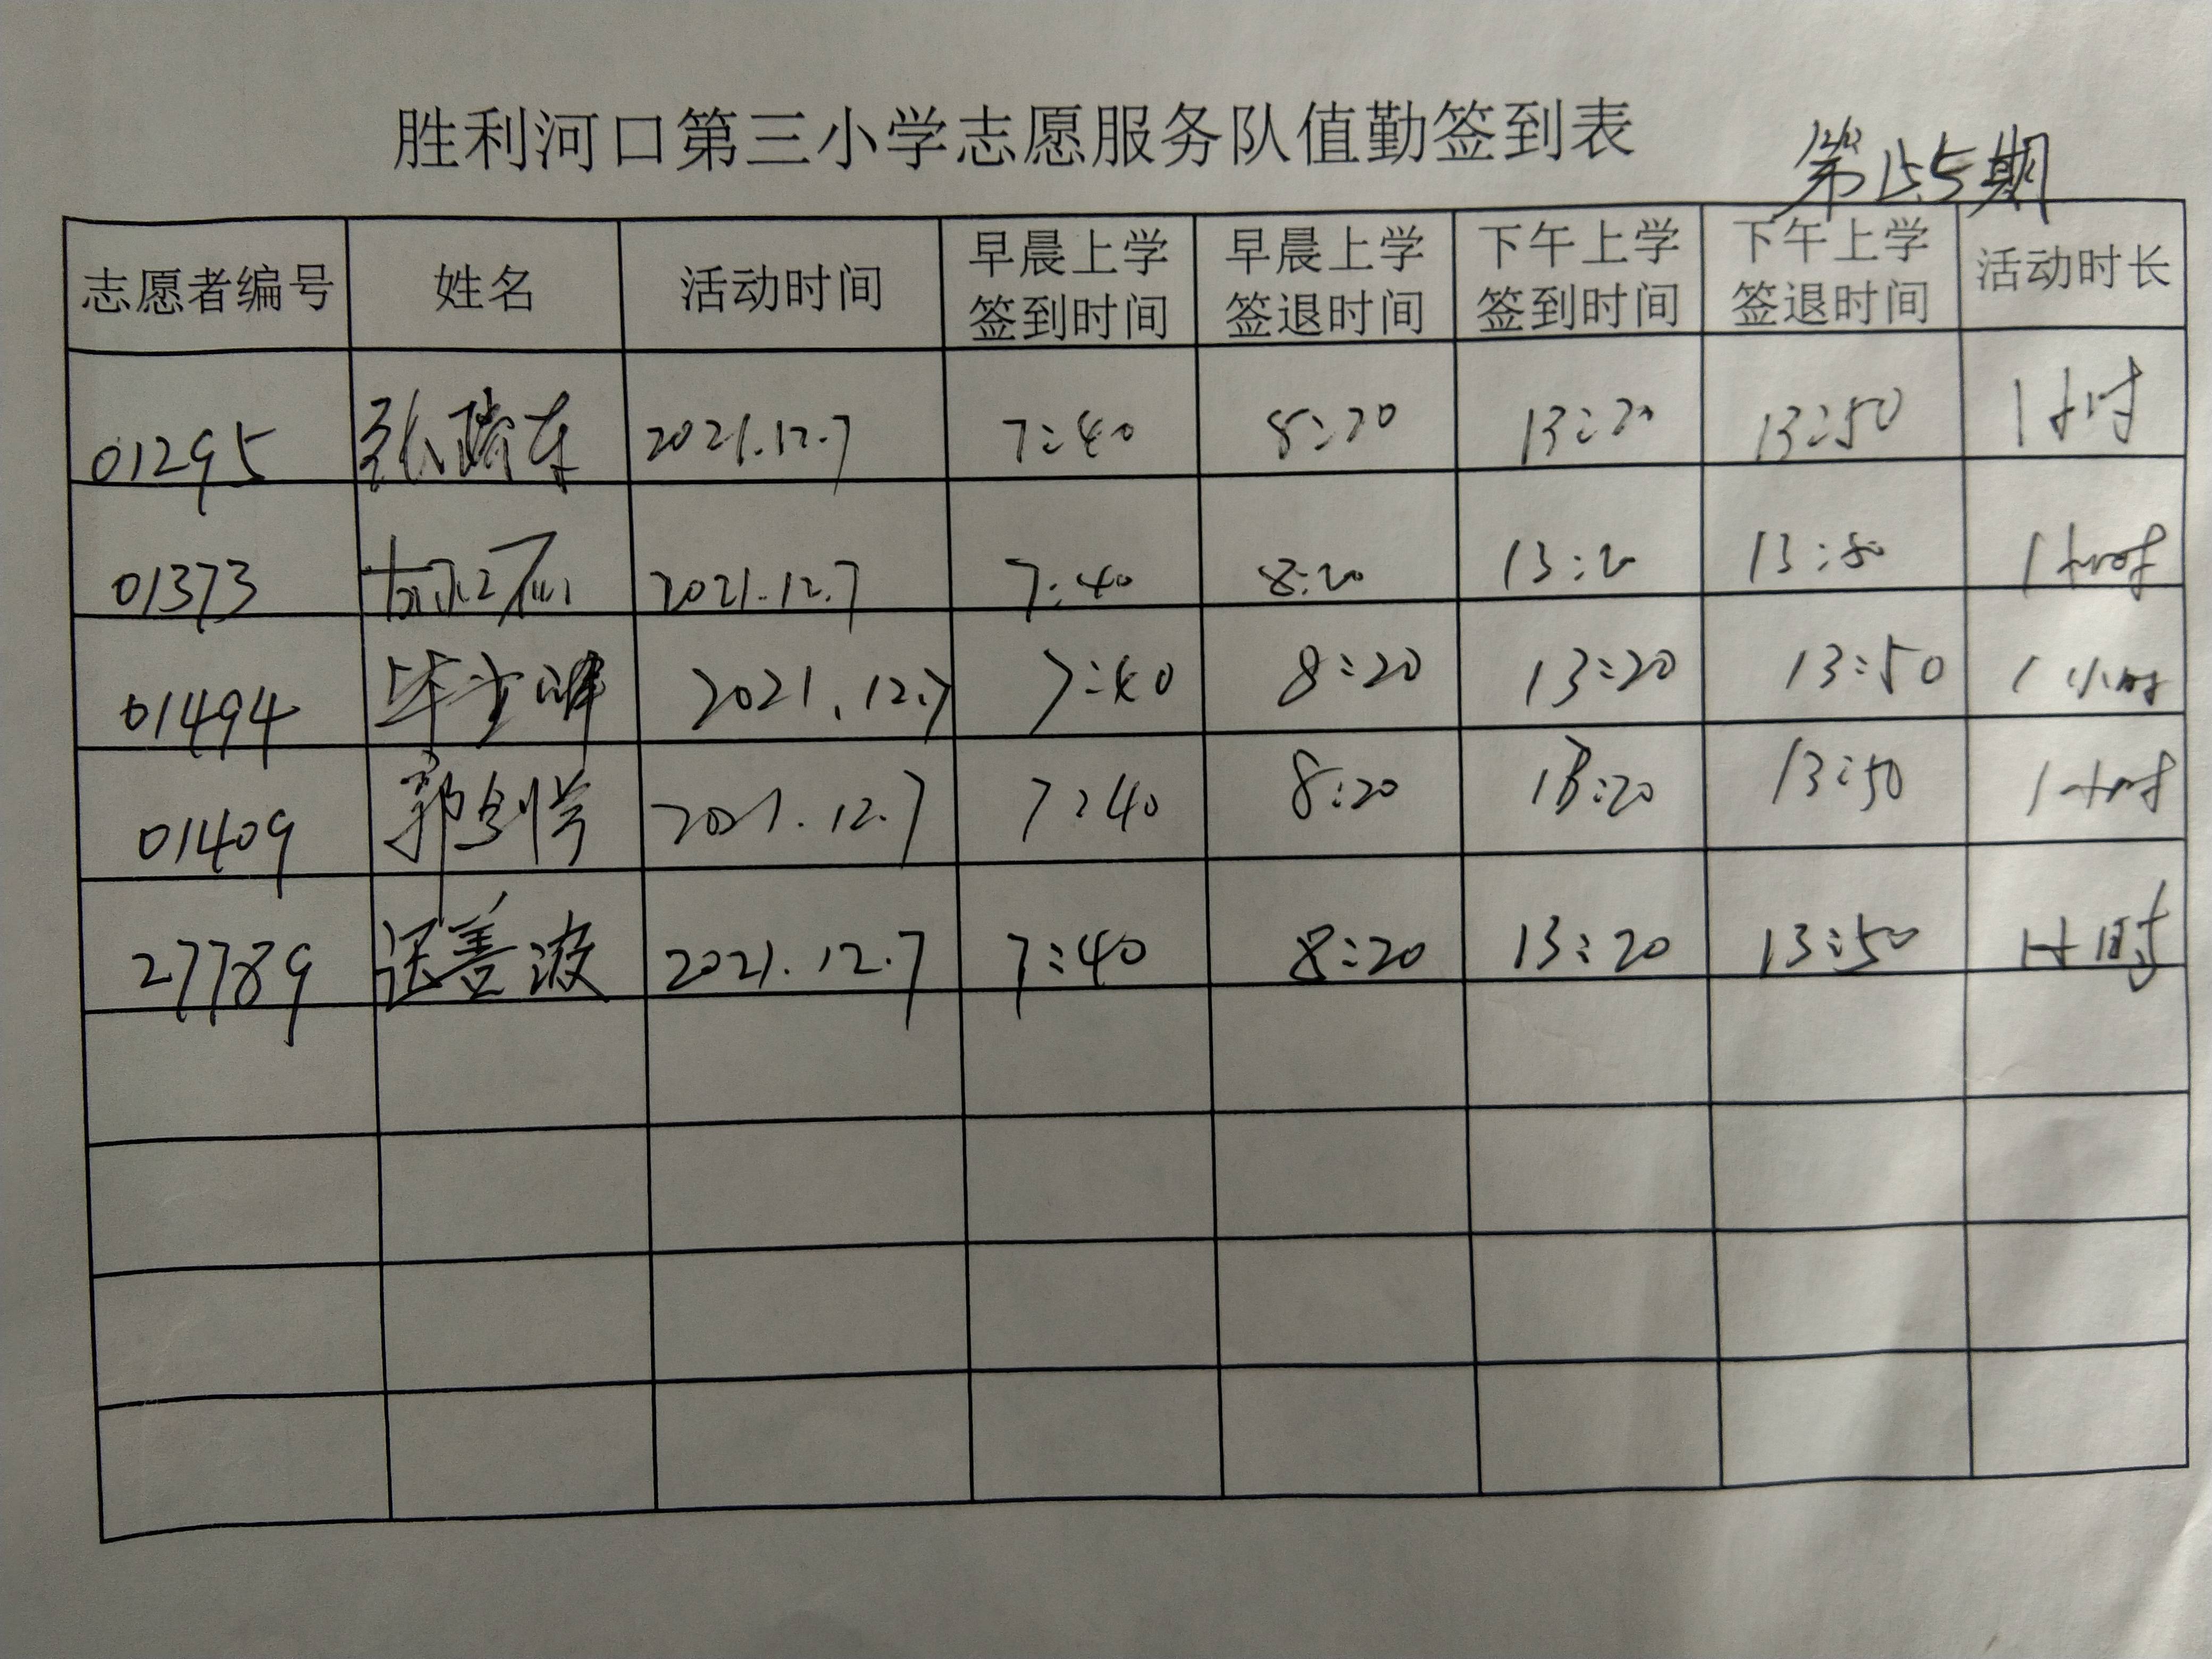 胜利河口第三小学志愿服务队值勤签到表
第155期
志愿者编号 姓名 活动时间 早晨上学签到时间 早晨上学签退时间 下午上学签到时间 下午上学签退时间 活动时长
01295 张瑞东 2021.12.7 7:40 8:20 13:20 13:50 1小时
01373 2021.12.7 7:40 8:20 13:20 13:50 1小时
01494 2021.12.7 7:40 8:20 13:20 13:50 1小时
01409 郭剑 2021.12.7 7:40 8:20 13:20 13:50 1小时
27789 善波 2021.12.7 7:40 8:20 13:20 13:50 1小时